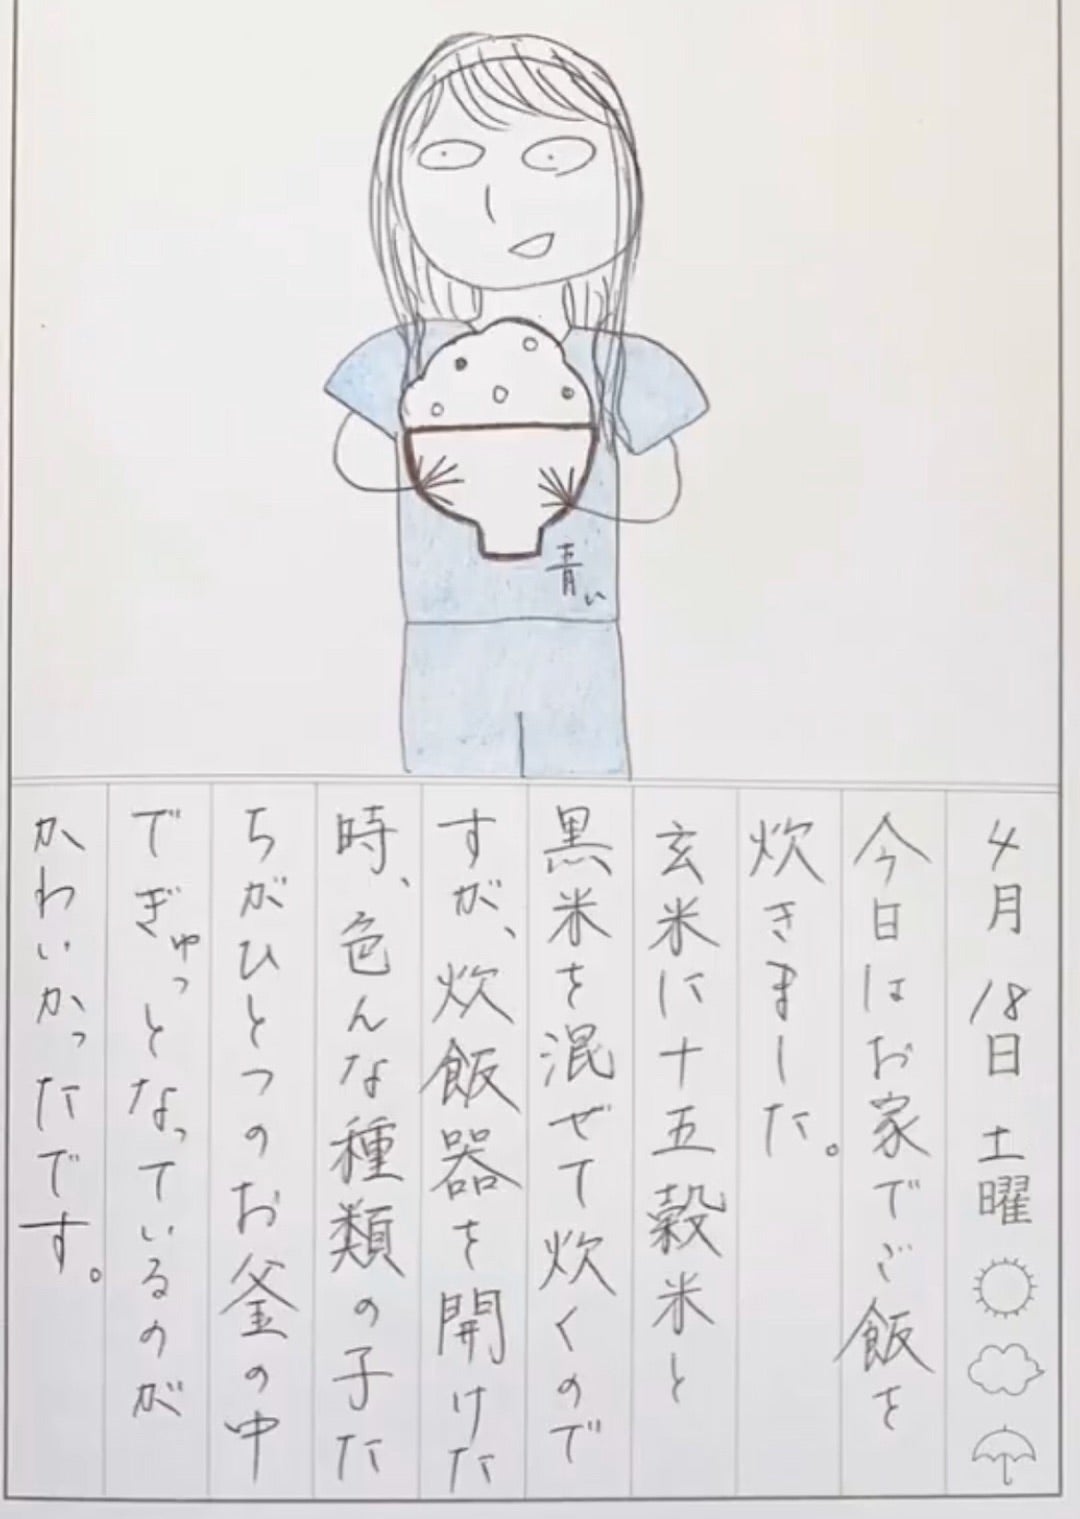 青い
4月18日土曜
今日はお家でご飯を
炊きました。
玄米に十五穀米と
黒米を混ぜて炊くので
すが、炊飯器を開けた
時、色んな種類の子た
ちがひとつのお釜の中
でぎゅっとなっているのが
かわいかったです。